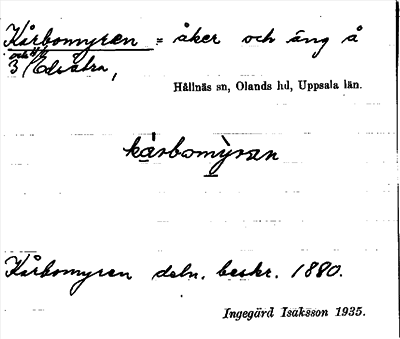 Kårbomyren = åker och äng å
3 Edsätra,
Hållnäs sn, Olands hd, Uppsala län.
kårbomỳran
Kårbomyren deln. beskr. 1880.
Ingegärd Isaksson 1935.